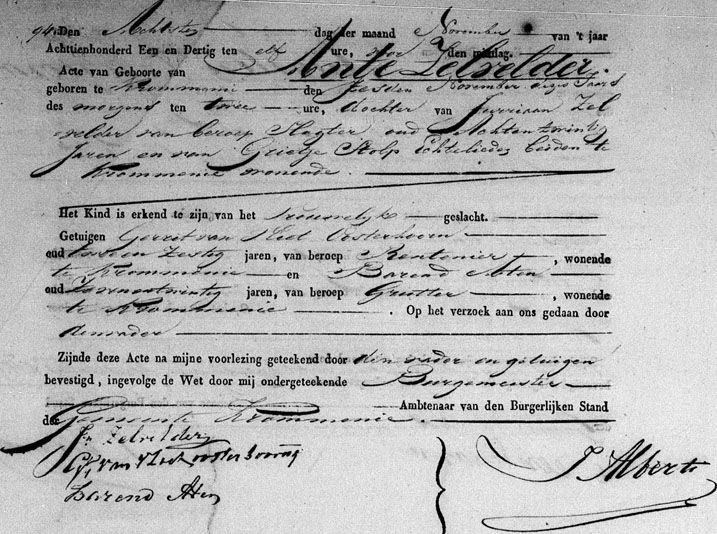 94. Den Achtste dag der maand November van 't jaar
Achttienhonderd Een en Dertig ten elf ure, voor den middag.
Acte van Geboorte van Antje Zelvelder.
geboren te Krommenie den Zesden November dezes Jaars
des morgens ten twee ure, dochter van Jurriaan Zel
velder van beroep Slagter oud Achtentwintig
Jaren en van Grietje Stolp Echtelieden beiden te
Krommenie wonende.
Het Kind is erkend te zijn van het Vrouwelijke geslacht.
Getuigen Gerrit van Vliet Oosterhoorn
oud twee en Zestig jaren, van beroep Rentenier, wonende
te Krommenie en Barend Aten
oud jaren, van beroep Grutter, wonende
te Krommenie. Op het verzoek aan ons gedaan door
den vader
Zijnde deze Acte na mijne voorlezing geteekend door den vader en getuigen
bevestigd, ingevolge de Wet door mij ondergeteekende Burgemeester
Ambtenaar van den Burgerlijken Stand
der Gemeente Krommenie.
Jn Zelvelder
van
Barend Aten
J Alberts